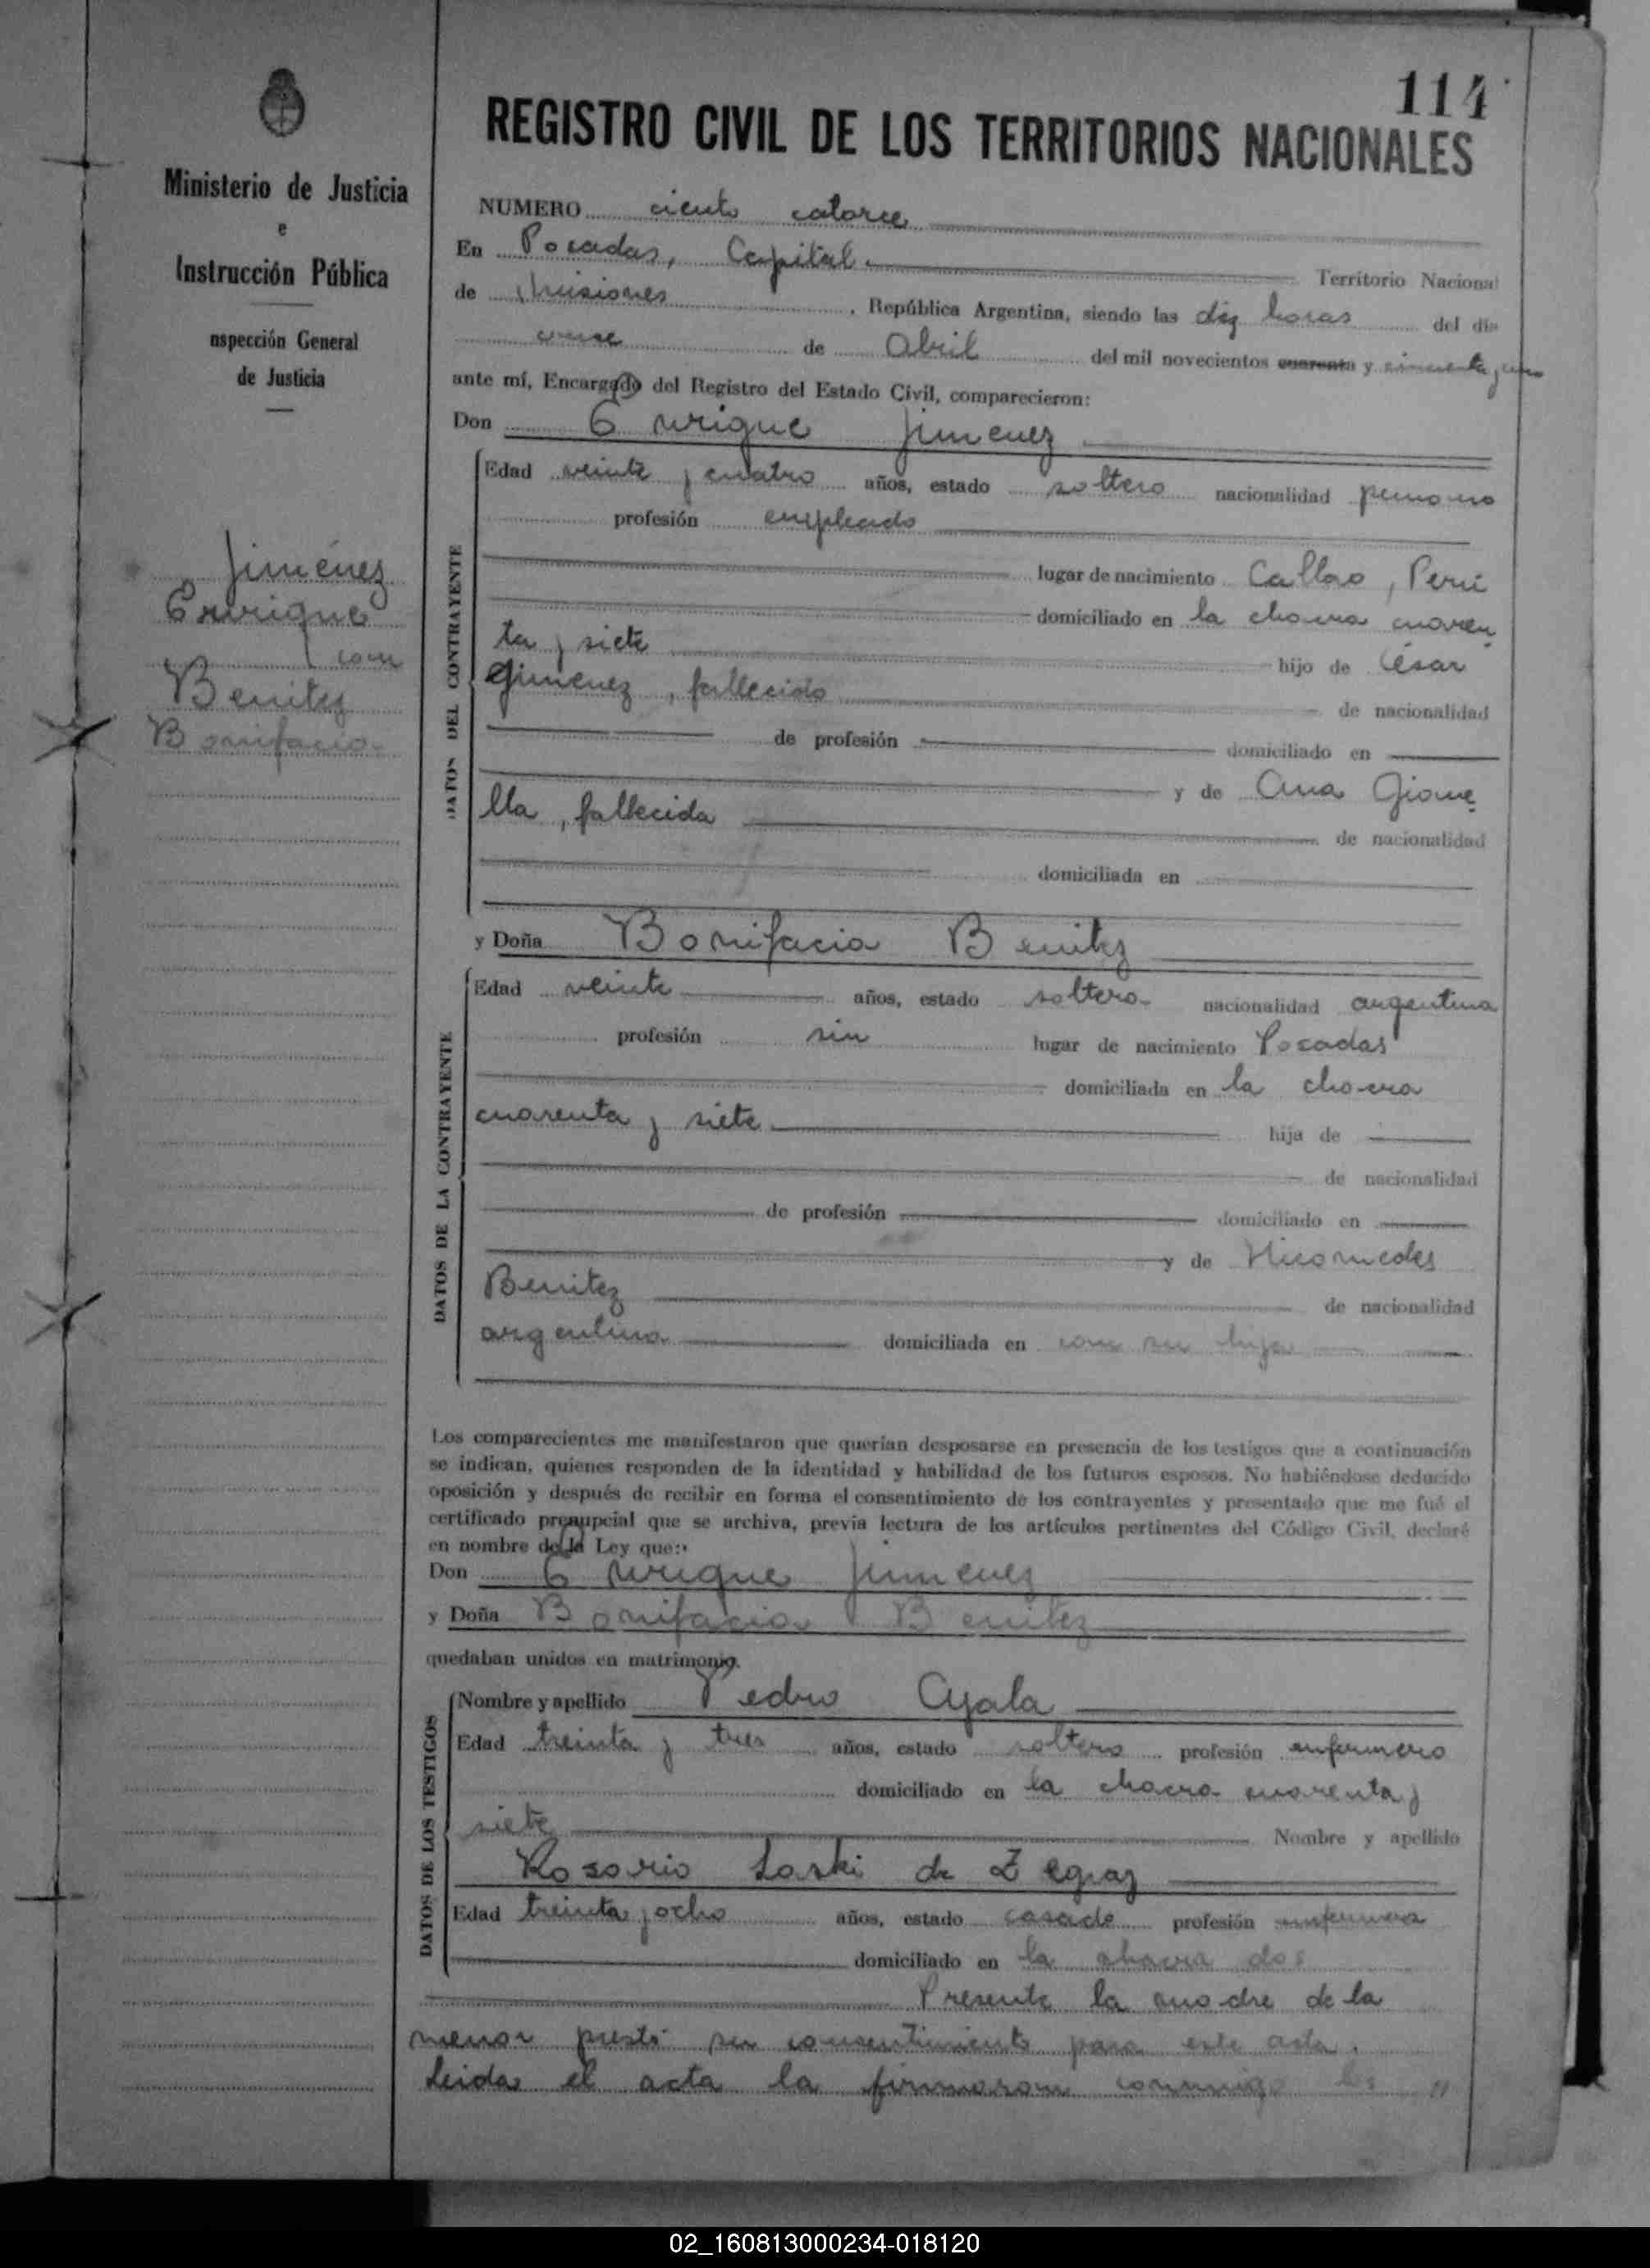 114
REGISTRO CIVIL DE LOS TERRITORIOS NACIONALES
Ministerio de Justicia
e
Instrucción Pública
nspección General
de Justicia
Jiménez
Enrique
con
Benitez
Bonifacia
NUMERO ciento catorce
En Posadas, Capital Territorio Nacional
de Misiones, República Argentina, siendo las diez horas del día
once de Abril del mil novecientos cuarenta y cincuenta y uno
ante mí, Encargado del Registro del Estado Civil, comparecieron:
Don Enrique Jimenez
DATOS DEL CONTRAYENTE
Edad veinte y cuatro años, estado soltero nacionalidad peruano
profesión empleado
lugar de nacimiento Callao, Perú
domiciliado en la chacra cuaren
ta y siete hijo de César
Gimenez, fallecido de nacionalidad
de profesión domiciliado en
y de Ana Giane
lla, fallecida de nacionalidad
domiciliada en
y Doña Bonifacia Benitez
DATOS DE LA CONTRAYENTE
Edad veinte años, estado soltera nacionalidad argentina
profesión sin lugar de nacimiento Posadas
domiciliada en la chacra
cuarenta y siete hija de
de nacionalidad
de profesión domiciliado en
y de Nicomedes
Benitez de nacionalidad
argentina domiciliada en con su hija
Los comparecientes me manifestaron que querían desposarse en presencia de los testigos que a continuación
se indican, quienes responden de la identidad y habilidad de los futuros esposos. No habiéndose deducido
oposición y después de recibir en forma el consentimiento de los contrayentes y presentado que me fué el
certificado prenupcial que se archiva, previa lectura de los artículos pertinentes del Código Civil, declaré
en nombre de la Ley que:
Don Enrique Jimenez
y Doña Bonifacia Benitez
quedaban unidos en matrimonio.
DATOS DE LOS TESTIGOS
Nombre y apellido Pedro Ayala
Edad treinta y tres años, estado soltero profesión enfermero
domiciliado en la chacra cuarenta y
siete Nombre y apellido
Rosario Laski de Zegraz
Edad treinta y ocho años, estado casada profesión enfermera
domiciliado en la chacra dos
Presente la madre de la
menor prestó su consentimiento para este acta.
Leida el acta la firmaron conmigo los
02_160813000234-018120